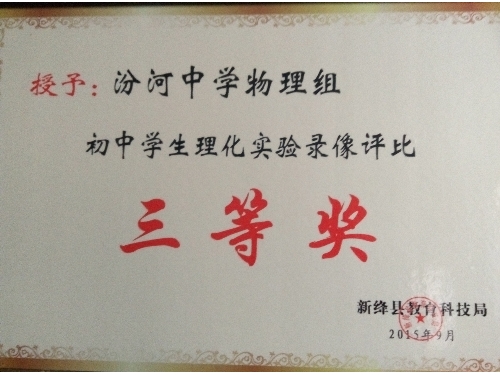 授予：汾河中学物理组
初中学生理化实验录像评比
三等奖
新绛县教育科技局
2015年9月